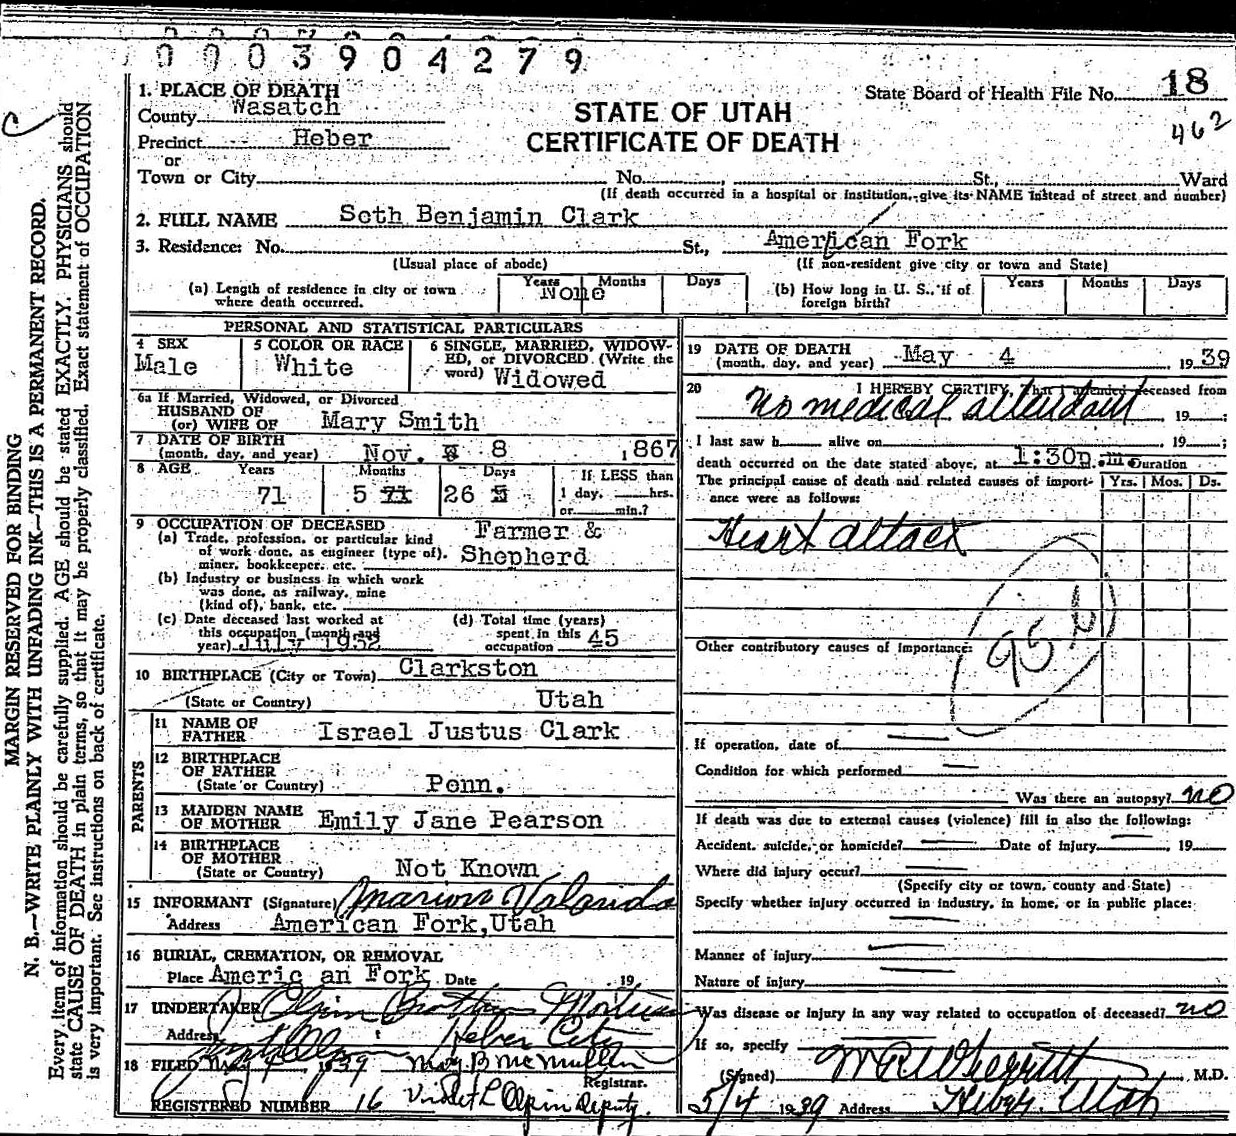 0003904279
1. PLACE OF DEATH
County Wasatch
Precinct Heber
or
Town or City No. St., Ward
(If death occurred in a hospital or institution, give its NAME instead of street and number)
STATE OF UTAH
CERTIFICATE OF DEATH
State Board of Health File No. 18
462
2. FULL NAME Seth Benjamin Clark
3. Residence: No. St., American Fork
(Usual place of abode) (If non-resident give city or town and State)
(a) Length of residence in city or town where death occurred. Years None Months Days
(b) How long in U. S., if of foreign birth? Years Months Days
PERSONAL AND STATISTICAL PARTICULARS
4 SEX Male
5 COLOR OR RACE White
6 SINGLE, MARRIED, WIDOWED, or DIVORCED (Write the word) Widowed
6a If Married, Widowed, or Divorced
HUSBAND OF
(or) WIFE OF Mary Smith
7 DATE OF BIRTH
(month, day, and year) Nov. 8 1867
8 AGE Years Months Days If LESS than
71 5 71 26 5 1 day, hrs.
or min.?
9 OCCUPATION OF DECEASED
(a) Trade, profession, or particular kind
of work done, as engineer (type of),
miner, bookkeeper, etc. Farmer & Shepherd
(b) Industry or business in which work
was done, as railway, mine
(kind of), bank, etc.
(c) Date deceased last worked at
this occupation (month and
year) July 1932
(d) Total time (years)
spent in this
occupation 45
10 BIRTHPLACE (City or Town) Clarkston
(State or Country) Utah
PARENTS
11 NAME OF
FATHER Israel Justus Clark
12 BIRTHPLACE
OF FATHER
(State or Country) Penn.
13 MAIDEN NAME
OF MOTHER Emily Jane Pearson
14 BIRTHPLACE
OF MOTHER
(State or Country) Not Known
15 INFORMANT (Signature) Marion
Address American Fork, Utah
16 BURIAL, CREMATION, OR REMOVAL
Place Americ an Fork Date 19
17 UNDERTAKER Olpin Brothers
Address Heber City
18 FILED May 1939 May B McMullin
Registrar.
REGISTERED NUMBER 16 Violet L Olpin Deputy.
19 DATE OF DEATH
(month, day, and year) May 4 1939
20 I HEREBY CERTIFY, That I attended deceased from
no medical attendant 19 ;
I last saw h alive on 19 ;
death occurred on the date stated above, at 1:30p.m. Duration
The principal cause of death and related causes of importance were as follows: Yrs. Mos. Ds.
Heart attack
95
Other contributory causes of importance:
If operation, date of
Condition for which performed
Was there an autopsy? no
If death was due to external causes (violence) fill in also the following:
Accident, suicide, or homicide? Date of injury 19
Where did injury occur?
(Specify city or town, county and State)
Specify whether injury occurred in industry, in home, or in public place:
Manner of injury
Nature of injury
Was disease or injury in any way related to occupation of deceased? no
If so, specify
(Signed) M.D.
5/4 1939 Address Heber, Utah
MARGIN RESERVED FOR BINDING
N. B.—WRITE PLAINLY WITH UNFADING INK—THIS IS A PERMANENT RECORD.
Every item of information should be carefully supplied. AGE should be stated EXACTLY. PHYSICIANS should
state CAUSE OF DEATH in plain terms, so that it may be properly classified. Exact statement of OCCUPATION
is very important. See instructions on back of certificate.